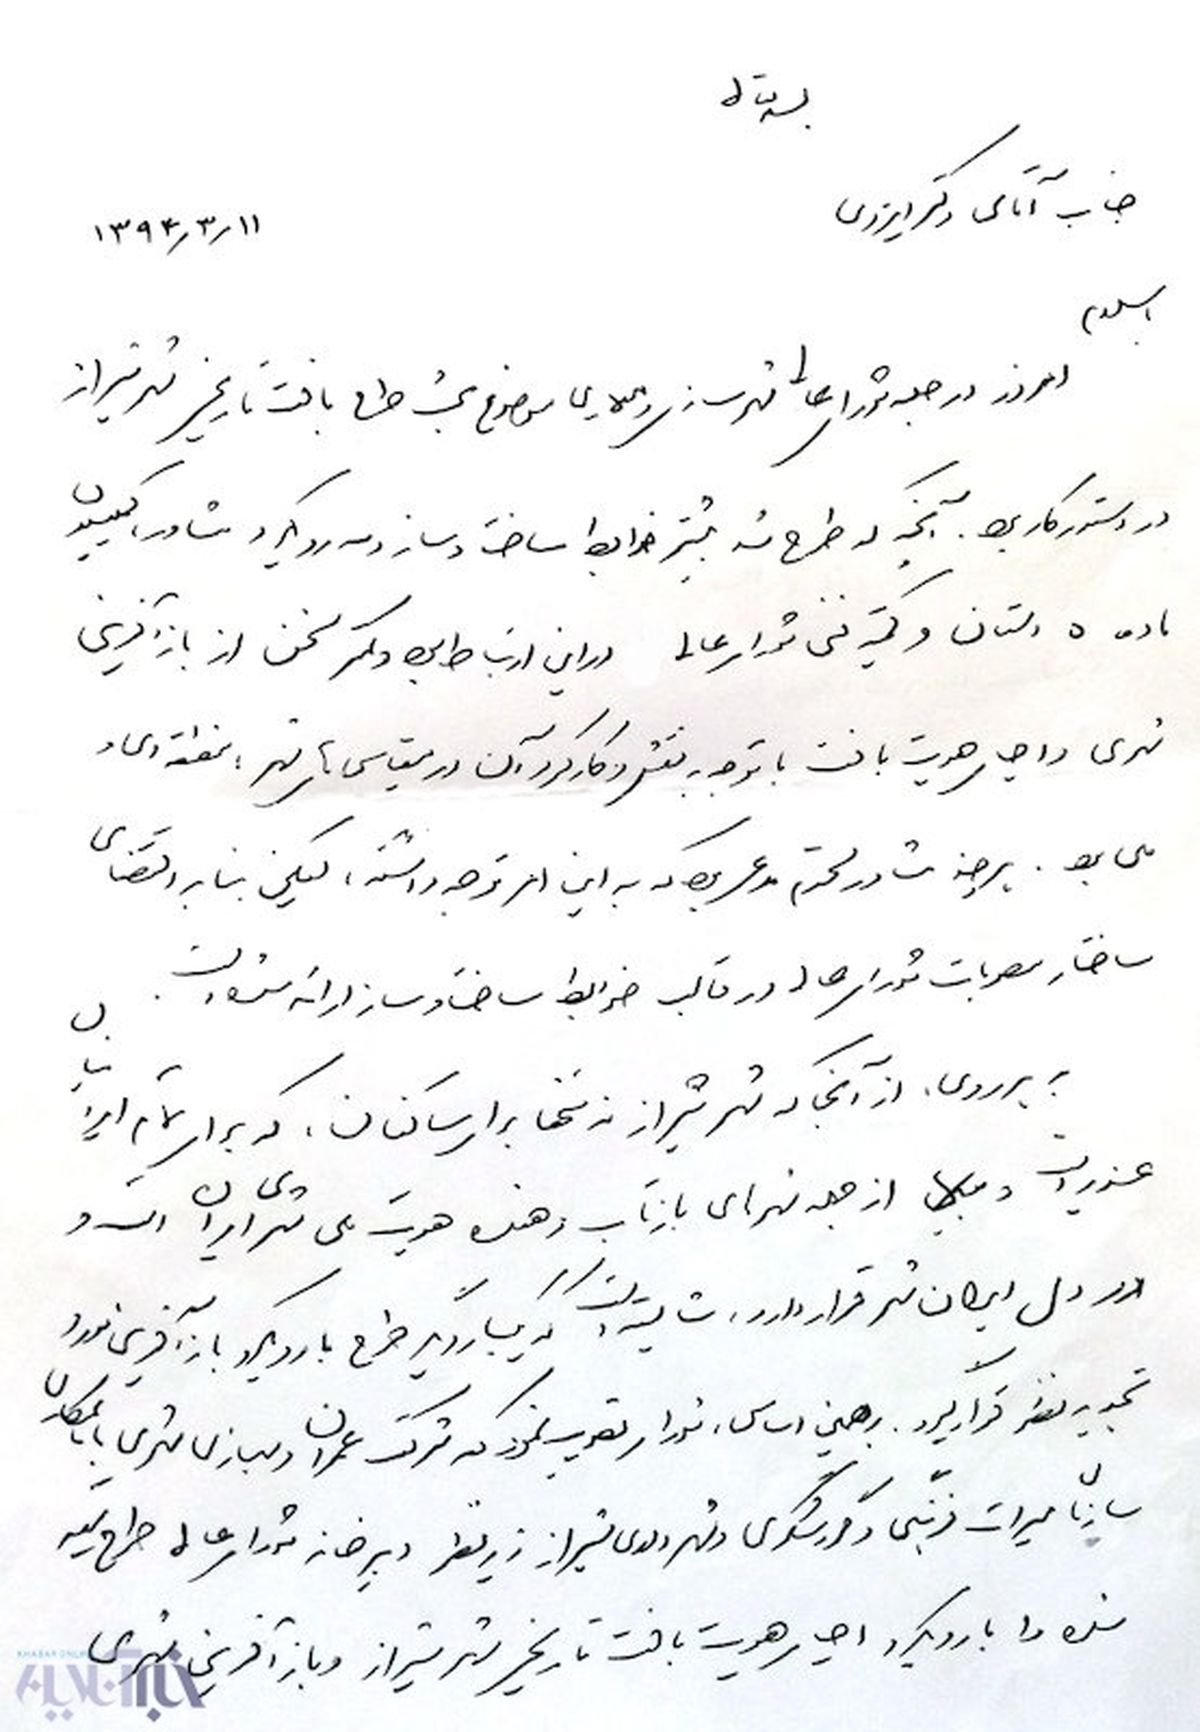 بسمه تعالی
جناب آقای دکتر ایزدی
۱۳۹۴/۳/۱۱
باسلام
امروز در جلسه شورای عالی شهرسازی و معماری موضوع بحث طرح بافت تاریخی شهر شیراز
در دستور کار بود. آنچه که طرح شد بیشتر ضوابط ساخت و ساز و رویکرد مشاور، کمیسیون
ماده ۵ استان و کمیته فنی شورای عالی در این ارتباط بود و کمتر سخن از بازآفرینی
شهری و احیای هویت بافت با توجه به نقش و کارکرد آن در مقیاس شهر، منطقه‌ای و
ملی بود. هرچند مشاور محترم مدعی بود که به این امر توجه داشته، لیکن بنا به اقتضای
ساختار مصوبات شورای عالی در قالب ضوابط ساخت و ساز ارائه شده است.
به هر روی، از آنجا که شهر شیراز نه تنها برای ساکنان، که برای تمام ایرانیان
عزیز است و از جمله شهرهای بازتاب دهنده هویت ملی شهرهای ایران است و
در دل ایران شهر قرار دارد، شایسته است که یکبار دیگر طرح با رویکرد بازآفرینی مورد
تجدید نظر قرار گیرد. بر همین اساس، شورا تصویب نمود که شرکت عمران و بهسازی شهری با همکاری
سازمان میراث فرهنگی و گردشگری و شهرداری شیراز زیر نظر دبیرخانه شورای عالی طرح تهیه
شده را با رویکرد احیای هویت بافت تاریخی شهر شیراز و بازآفرینی شهری
KHABAR ONLINE
خبرآنلاین